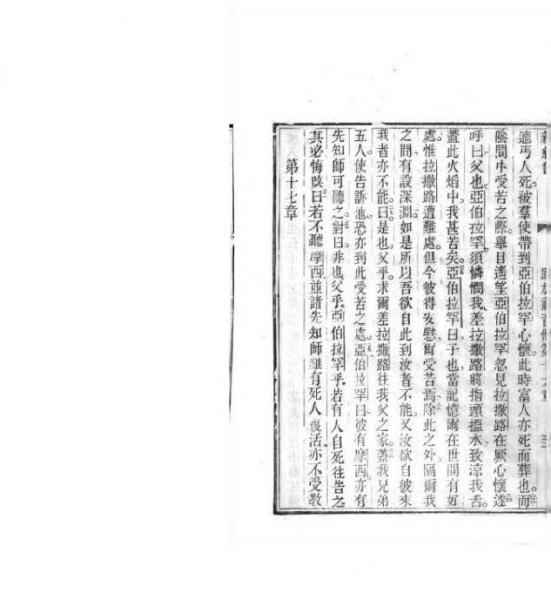 適丐人死被羣使帶到亞伯拉罕心懷此時富人亦死而葬也而
陰間中受苦之際舉目遙望亞伯拉罕忽見拉撒路在厥心懷遂
呼曰父也亞伯拉罕須憐憫我差拉撒路將指頭搵水致涼我舌
蓋此火焰中我甚苦矣亞伯拉罕曰子也當記憶爾在世間有好
處惟拉撒路遭難處但今彼得安慰爾受苦焉除此之外隔爾我
之間有設深淵如是所以吾欲自此到汝者不能又汝欲自彼來
我者亦不能曰是也父乎求爾差拉撒路往我父之家蓋我兄弟
五人使告訴他恐亦到此受苦之處亞伯拉罕曰彼有摩西亦有
先知師可聽之對曰非也父乎亞伯拉罕乎若有人自死往告之
其必悔改曰若不聽摩西並諸先知師雖有死人復活亦不受教
第十七章